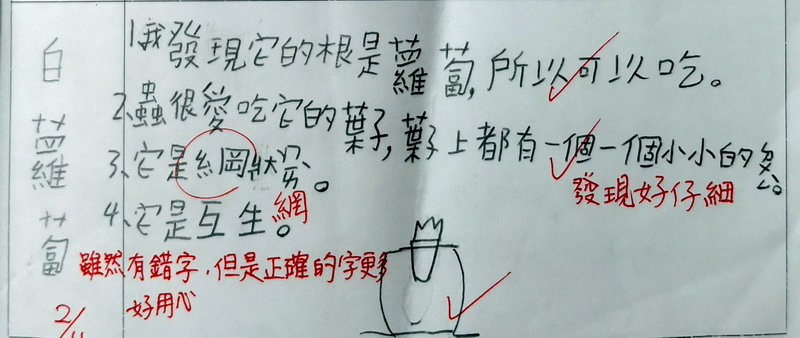 白蘿蔔
1.我發現它的根是蘿蔔,所以可以吃。
2.蟲很愛吃它的葉子,葉子上都有一個一個小小的。
發現好仔細
3.它是綱狀。
網
4.它是互生。
雖然有錯字,但是正確的字更多
好用心
2/11